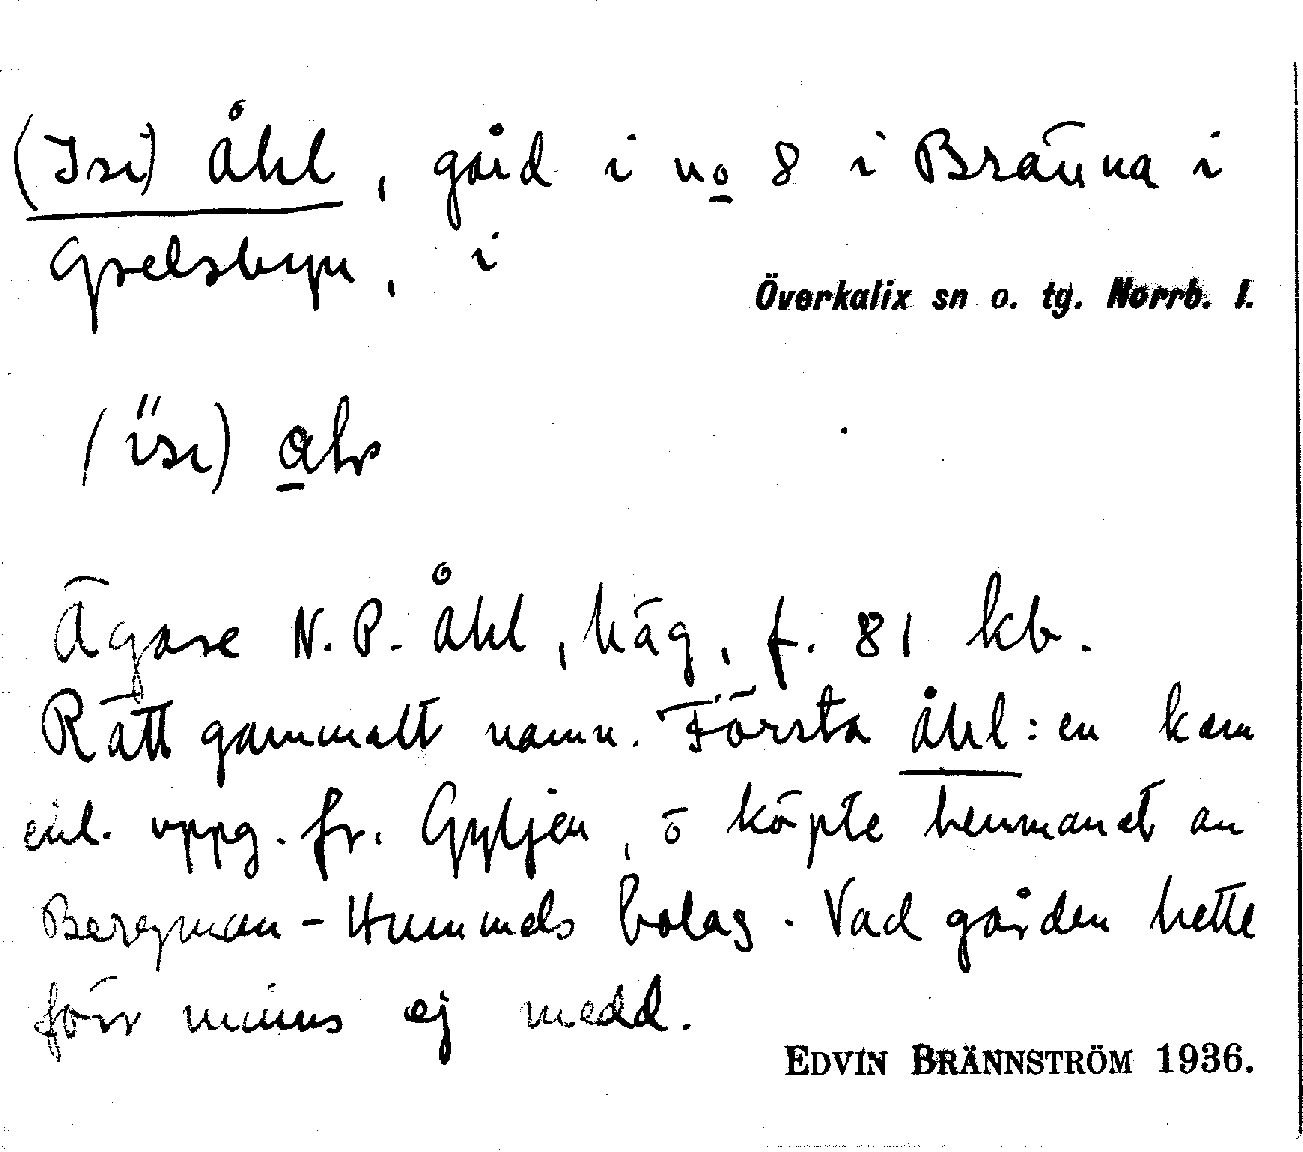 (Isi) Åhl, gård i no 8 i Bränna i
Grelsbyn, i
Överkalix sn o. tg. Norrb. l.
Ägare N. P. Åhl, häg, f. 81 kb.
Rätt gammalt namn. Första Åhl:en kom
enl. uppg. fr. Gyljen, o köpte hemmanet av
Bergman-Hummels bolag. Vad gården hette
förr minns ej medd.
EDVIN BRÄNNSTRÖM 1936.